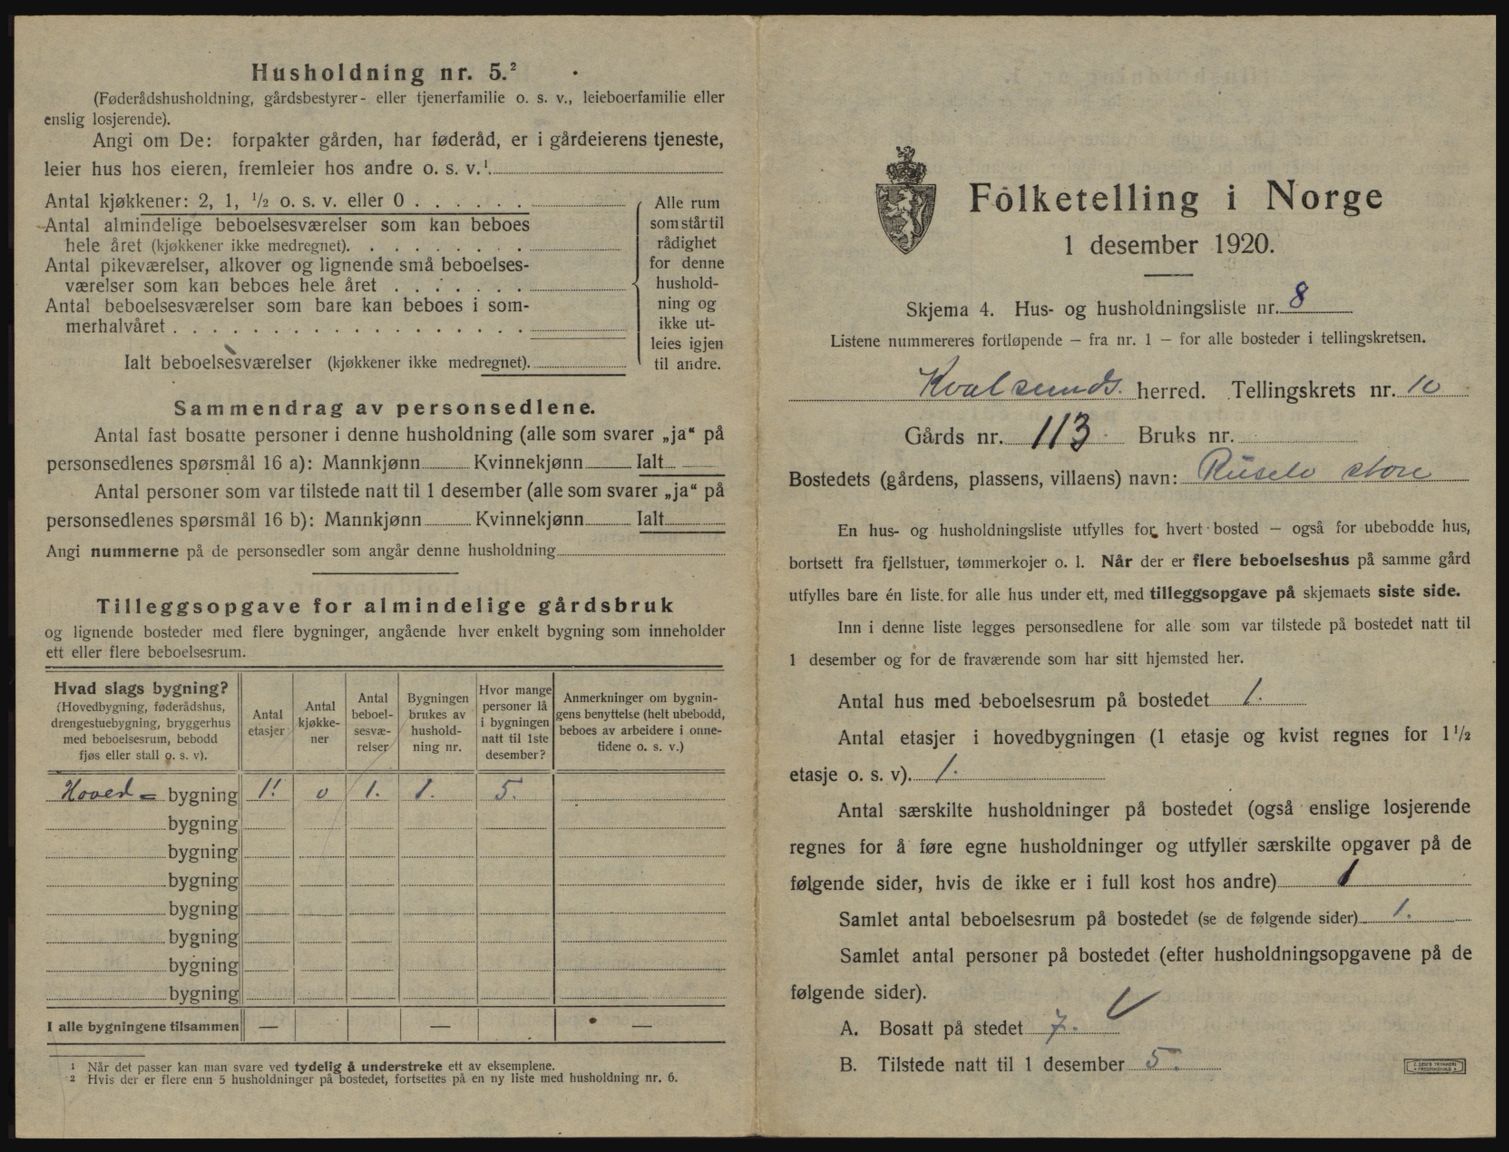 Husholdning nr. 5.²
(Føderådshusholdning, gårdsbestyrer- eller tjenerfamilie o. s. v., leieboerfamilie eller
enslig losjerende).
Angi om De: forpakter gården, har føderåd, er i gårdeierens tjeneste,
leier hus hos eieren, fremleier hos andre o. s. v.¹
Antal kjøkkener: 2, 1, ½ o. s. v. eller 0
Antal almindelige beboelsesværelser som kan beboes
hele året (kjøkkener ikke medregnet).
Antal pikeværelser, alkover og lignende små beboelses-
værelser som kan beboes hele året
Antal beboelsesværelser som bare kan beboes i som-
merhalvåret
Ialt beboelsesværelser (kjøkkener ikke medregnet).
Alle rum
som står til
rådighet
for denne
hushold-
ning og
ikke ut-
leies igjen
til andre.
Sammendrag av personsedlene.
Antal fast bosatte personer i denne husholdning (alle som svarer „ja“ på
personsedlenes spørsmål 16 a): Mannkjønn Kvinnekjønn Ialt
Antal personer som var tilstede natt til 1 desember (alle som svarer „ja“ på
personsedlenes spørsmål 16 b): Mannkjønn Kvinnekjønn Ialt
Angi nummerne på de personsedler som angår denne husholdning
Tilleggsopgave for almindelige gårdsbruk
og lignende bosteder med flere bygninger, angående hver enkelt bygning som inneholder
ett eller flere beboelsesrum.
Hvad slags bygning?
(Hovedbygning, føderådshus,
drengestuebygning, bryggerhus
med beboelsesrum, bebodd
fjøs eller stall o. s. v).
Antal
etasjer
Antal
kjøkke-
ner
Antal
beboel-
sesvæ-
relser
Bygningen
brukes av
hushold-
ning nr.
Hvor mange
personer lå
i bygningen
natt til 1ste
desember?
Anmerkninger om bygnin-
gens benyttelse (helt ubebodd,
beboes av arbeidere i onne-
tidene o. s. v.)
Hoved- bygning 1. 0 1. 1. 5.
bygning
bygning
bygning
bygning
bygning
bygning
bygning
I alle bygningene tilsammen — — —
¹ Når det passer kan man svare ved tydelig å understreke ett av eksemplene.
² Hvis der er flere enn 5 husholdninger på bostedet, fortsettes på en ny liste med husholdning nr. 6.
Folketelling i Norge
1 desember 1920.
Skjema 4. Hus- og husholdningsliste nr. 8
Listene nummereres fortløpende — fra nr. 1 — for alle bosteder i tellingskretsen.
Kvalsunds herred. Tellingskrets nr. 10
Gårds nr. 113 Bruks nr.
Bostedets (gårdens, plassens, villaens) navn: store
En hus- og husholdningsliste utfylles for hvert bosted — også for ubebodde hus,
bortsett fra fjellstuer, tømmerkojer o. l. Når der er flere beboelseshus på samme gård
utfylles bare én liste for alle hus under ett, med tilleggsopgave på skjemaets siste side.
Inn i denne liste legges personsedlene for alle som var tilstede på bostedet natt til
1 desember og for de fraværende som har sitt hjemsted her.
Antal hus med beboelsesrum på bostedet 1.
Antal etasjer i hovedbygningen (1 etasje og kvist regnes for 1½
etasje o. s. v). 1.
Antal særskilte husholdninger på bostedet (også enslige losjerende
regnes for å føre egne husholdninger og utfyller særskilte opgaver på de
følgende sider, hvis de ikke er i full kost hos andre) 1
Samlet antal beboelsesrum på bostedet (se de følgende sider) 1.
Samlet antal personer på bostedet (efter husholdningsopgavene på de
følgende sider).
A. Bosatt på stedet 7.
B. Tilstede natt til 1 desember 5.